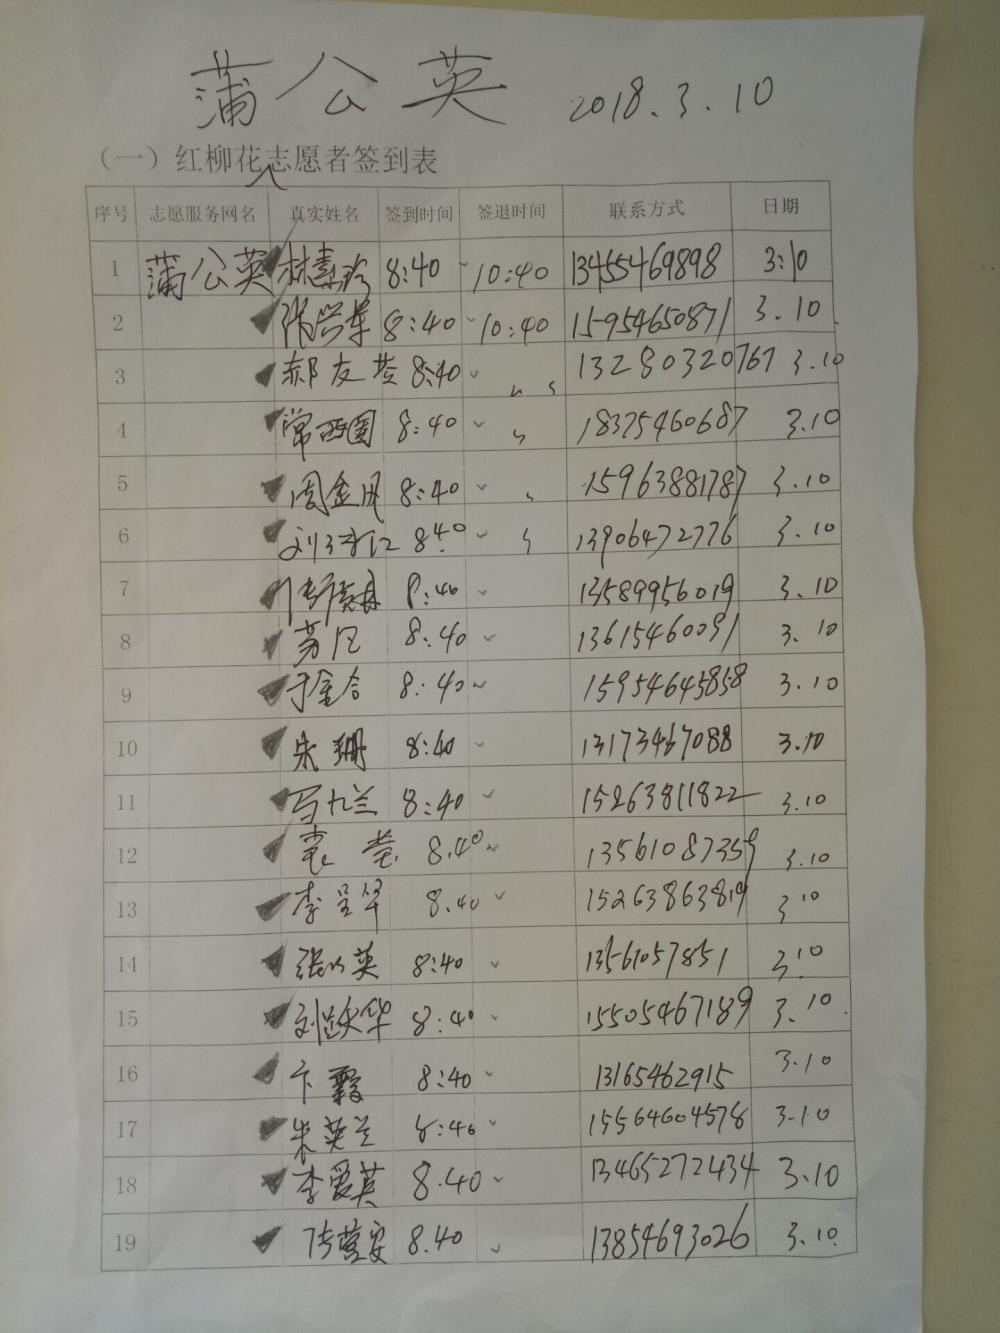 蒲公英 2018.3.10
（一）红柳花志愿者签到表
序号 志愿服务网名 真实姓名 签到时间 签退时间 联系方式 日期
1 蒲公英 林素珍 8:40 10:40 13455469898 3:10
2 8:40 10:40 15954650871 3.10
3 郝友芸 8:40 13280320767 3.10
4 常西圆 8:40 18375460687 3.10
5 周金凤 8:40 15963881787 3.10
6 8:40 13906472776 3.10
7 8:40 13589956019 3.10
8 8:40 13615460091 3.10
9 于金合 8:40 15954645858 3.10
10 朱珊 8:40 13173467088 3.10
11 马九兰 8:40 15263811822 3.10
12 袁莹 8.40 13561087359 3.10
13 李呈华 8.40 15263863819 3.10
14 张以英 8:40 13561057851 3.10
15 刘跃华 8:40 15505467189 3.10
16 卞霞 8:40 13165462915 3.10
17 朱英兰 8:40 15564604578 3.10
18 李爱英 8.40 13465272434 3.10
19 8.40 13854693026 3.10